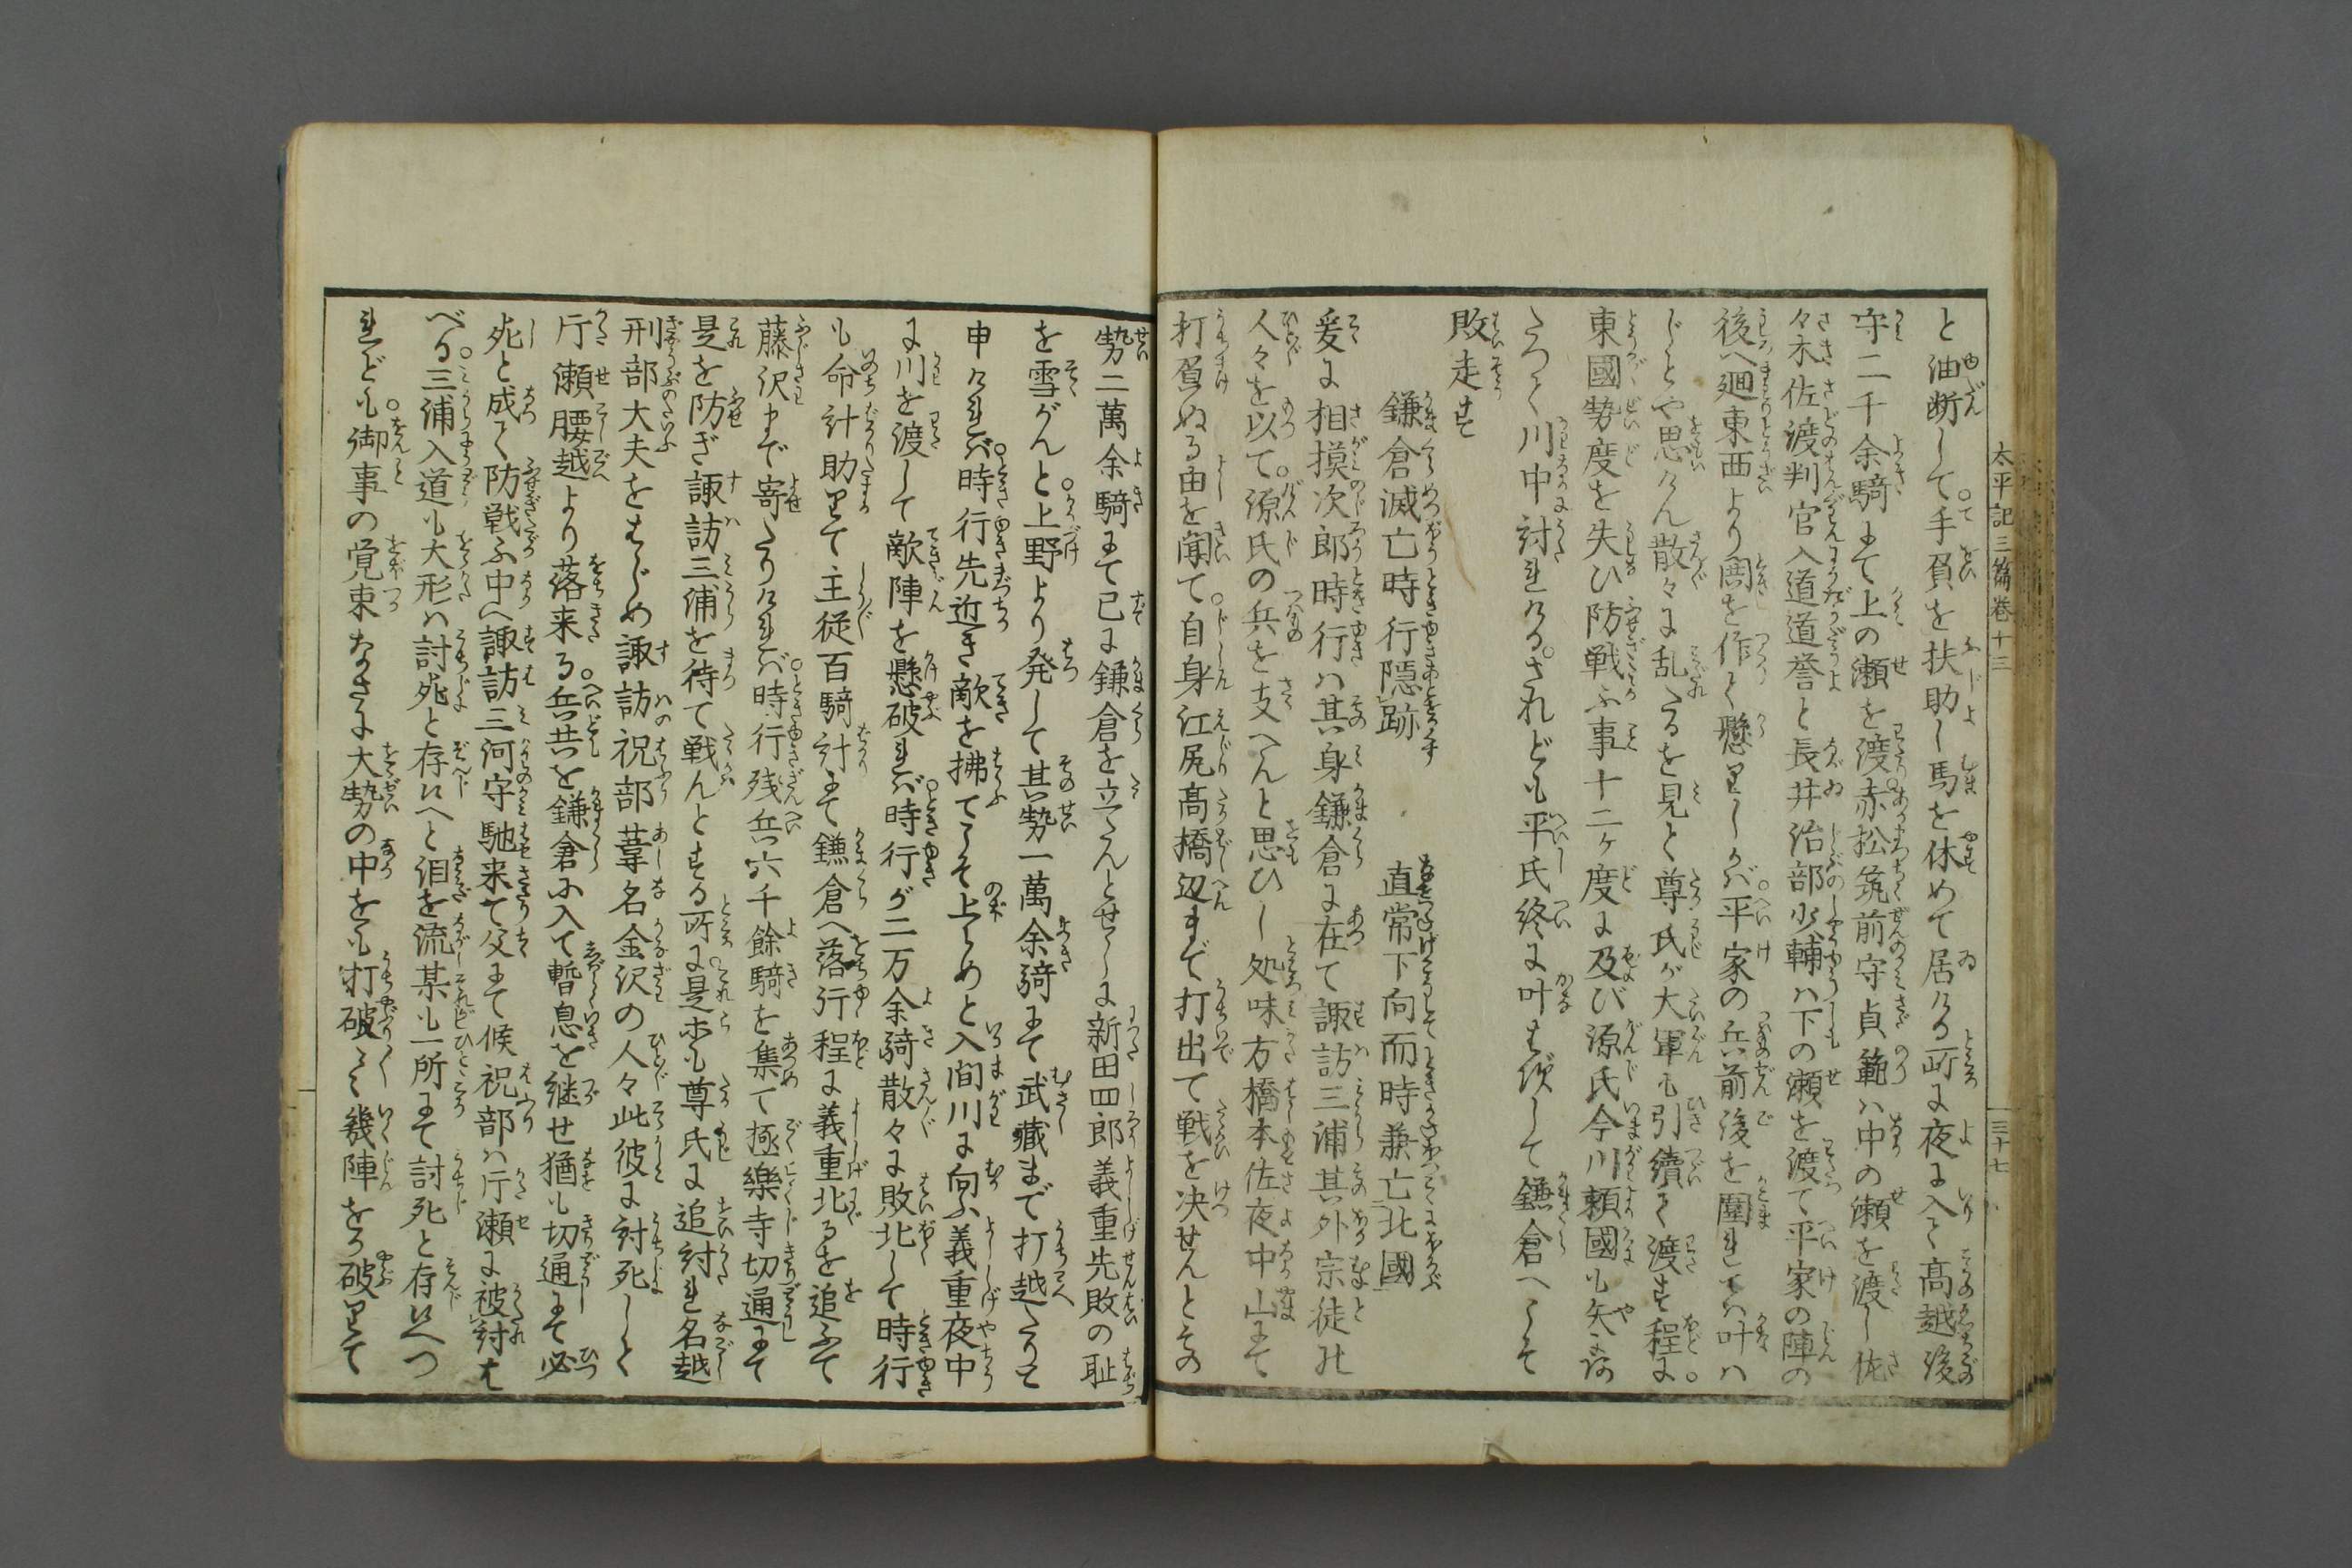 太平記三篇巻十三
三十七
と油断して手負を扶助し馬を休めて居ける所に夜に入て高越後
守二千余騎にて上の瀬を渡赤松筑前守貞範ハ中の瀬を渡し佐
々木佐渡判官入道道誉と長井治部少輔ハ下の瀬を渡て平家の陣の
後へ廻東西より鬨を作て懸りしかバ平家の兵前後を囲れてハ叶ハ
じとや思けん散々に乱たるを見て尊氏が大軍も引續て渡す程に
東國勢度を失ひ防戦ふ事十二ケ度に及び源氏今川頼國も矢に
たつて川中討れける。されども平氏終に叶ずして鎌倉へこそ
敗走す
鎌倉滅亡時行隠跡 直常下向而時兼亡北國
爰に相摸次郎時行ハ其身鎌倉に在て諏訪三浦其外宗徒の
人々を以て源氏の兵を支へんと思ひし処味方橋本佐夜中山にて
打負ぬる由を聞て自身江尻高橋辺まで打出て戦を决せんとその
勢二萬余騎にて已に鎌倉を立たんとせしに新田四郎義重先敗の耻
を雪がんと上野より発して其勢一萬余騎にて武蔵まで打越たりと
申けれバ時行先近き敵を拂てこそ上らめと入間川に向ふ義重夜中
に川を渡して敵陣を懸破れバ時行が二万余騎散々に敗北して時行
も命計助りて主従百騎計にて鎌倉へ落行程に義重北るを追ふて
藤沢まで寄たりけれバ時行残兵六千餘騎を集て極樂寺切通にて
是を防ぎ諏訪三浦を待て戦んとする所に是等も尊氏に追討れ名越
刑部大夫をはじめ諏訪祝部葦名金沢の人々此彼に討死して
片瀬腰越より落来る兵共を鎌倉に入て暫息を継せ猶も切通にて必
死と成て防戦ふ中へ諏訪三河守馳来て父にて候祝部ハ片瀬に被討は
べる三浦入道も大形ハ討死と存候へと泪を流某も一所にて討死と存候へつ
れども御事の覚束なさに大勢の中をも打破て幾陣をか破りて